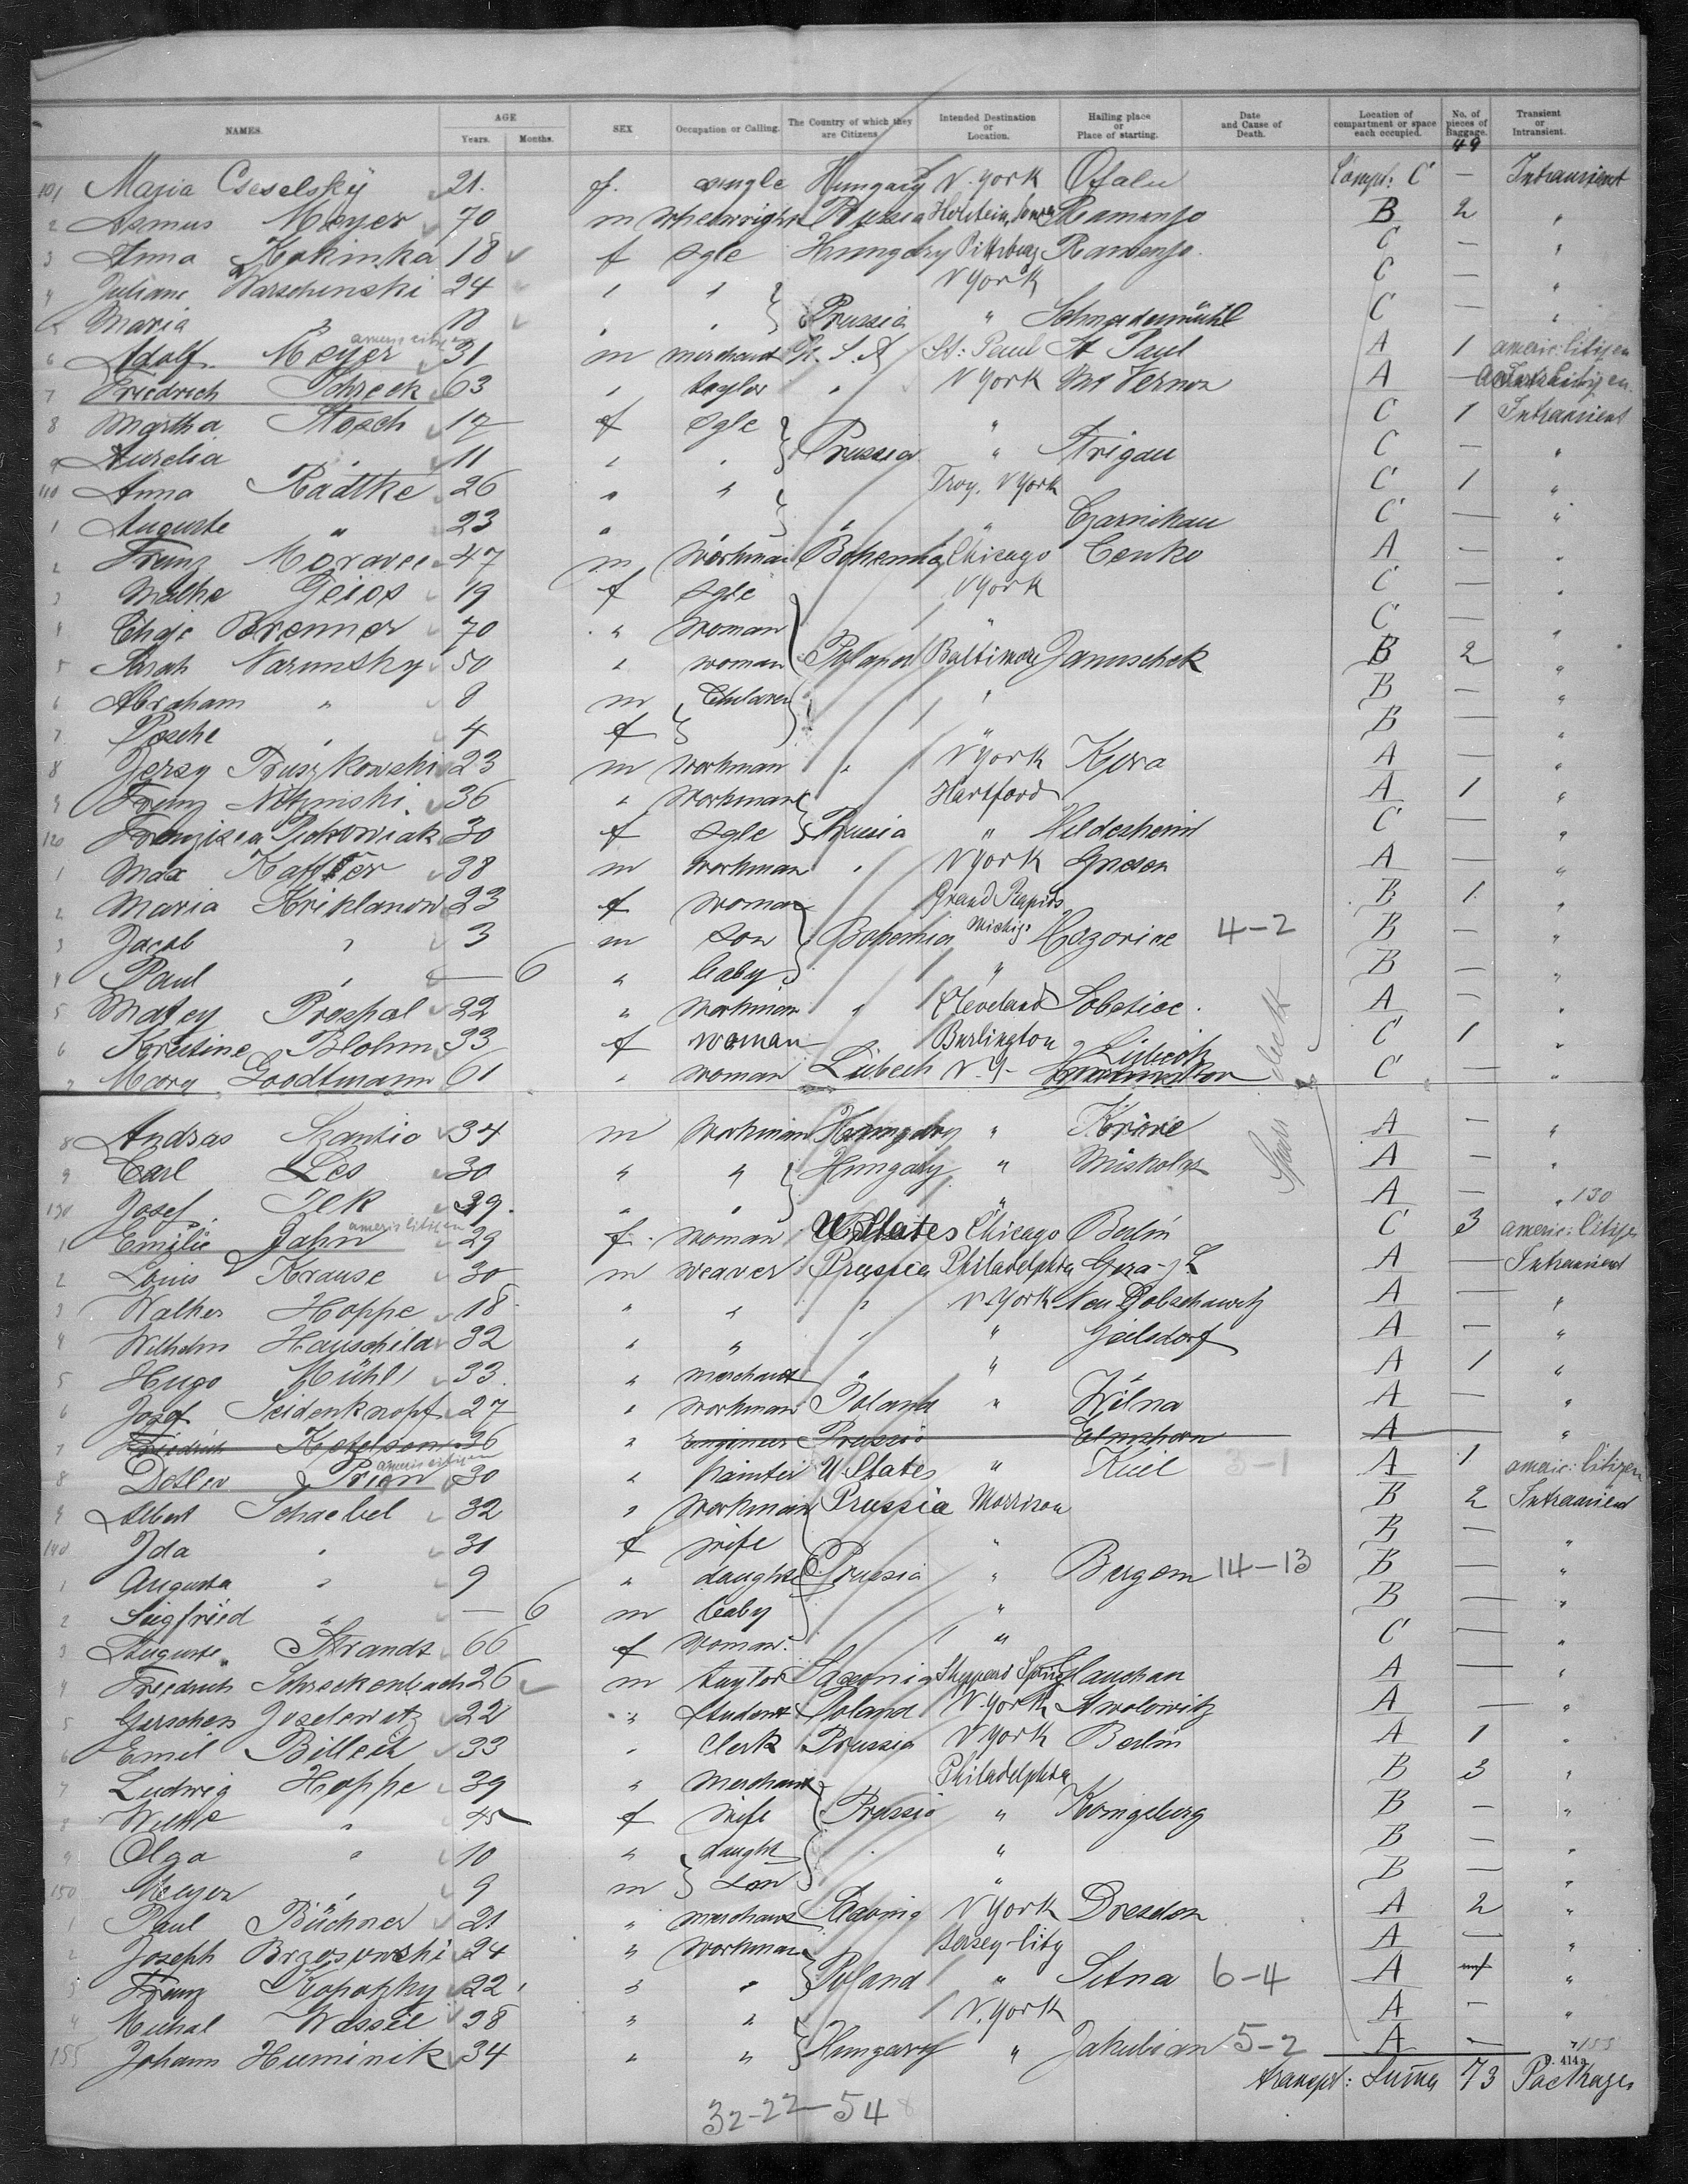 NAMES. AGE Years. Months. SEX Occupation or Calling. The Country of which they are Citizens. Intended Destination or Location. Hailing place or Place of starting. Date and Cause of Death. Location of compartment or space each occupied. No. of pieces of Baggage. Transient or Intransient.
49
101 Maria Cseselsky 21. f. single Hungary N. York Ofalu Compt: C — Intransient
2 Asmus Meyer 70 m Wheelwright Prussia Holstein, Iowa B 2 "
3 Anna Kokinka 18 f sgle Hungary Pittsburg C — "
4 Juliane Warschinski 24 " " N York C — "
5 Maria " 18 " " Prussia " Schneidemühl C — "
americ citizen
6 Adolf Meyer 31 m merchant U. S. A St: Paul St Paul A 1 americ: citizen
7 Friedrich Schreck 63 " taylor " N York Mt Vernon A —
8 Martha Stosch 17 f sgle " C 1 Intransient
9 Aurelia " 11 " " Prussia " Strigau C — "
110 Anna Radtke 26 " " Troy, N York C 1 "
1 Auguste " 23 " " " Czarnikau C — "
2 Franz Moravec 47 m Workman Bohemia Chicago Cenko A — "
3 Malke Geios 19 f sgle N York C — "
4 Chaje Brenner 70 " Woman " C — "
5 Sarah Narunsky 50 " woman Poland Baltimore Januschok B 2 "
6 Abraham " 8 m Children " B — "
7 Pesche " 4 f " B — "
8 Jersy Truszkowski 23 m Workman " N York Kira A — "
9 Franz Nitzinski 36 " Workman Hartford A 1 "
120 Franziska 30 f sgle Prussia " Hildesheim C — "
1 Max Kaffler 38 m Workman " N York Gnesen A — "
2 Maria Kriklanow 23 f Woman Grand Rapids B 1 "
3 Jacob " 3 m Son Bohemia Michig. Hozorine 4-2 B — "
4 Paul " — 6 " baby " B — "
5 Matey Prospal 22 " Workman " Cleveland Sobotice A — "
6 Kristine Blohm 33 f woman Burlington Lübeck C 1 "
7 Mary Goodtmann 61 " woman Lübeck N. Y- C — "
8 Andras Szantio 34 m Workman Hungary " Körove A — "
9 Carl Les 30 " " Hungary " Miskolcz A — "
130 Josef Ilk 39. " " " A — " 130
americ citizen
1 Emilie Jahn 29 f. Woman U. States Chicago Berlin C 3 americ: citizen
2 Louis Krause 30 m weaver Prussia Philadelphia Gera A — Intransient
3 Walter Hoppe 18 " " " N-York Neu Dobschawitz A — "
4 Wilhelm Hauschild 32 " " " " Geilsdorf A — "
5 Hugo Mühl 33. " merchant " " A 1 "
6 Josef Seidenknopf 27 " Workman Poland " Wilna A — "
7 Friedrich Kotelsom 26 " Engineer Prussia Elmshorn A "
americ citizen
8 Detlev Prien 30 " painter U States " Kiel 3-1 A 1 americ: citizen
9 Albert Schaebel 32 " Workman Prussia Morrison B 2 Intransient
140 Ida " 31 f wife " B — "
1 Augusta " 9 " daught Prussia " Bergom 14-13 B — "
2 Siegfried " — 6 m baby " B — "
3 Auguste Strandt 66 f woman. " C — "
4 Friedrich Schreckenbach 26 m taylor Saxonia Glauchau A — "
5 Gerschen Joselewitz 22 " Student Poland N-York Swolowitz A — "
6 Emil Billeck 33 " Clerk Prussia N York Berlin A 1 "
7 Ludwig Hoppe 39 " merchant Philadelphia B 3 "
8 45 f wife Prussia " Königsberg B — "
9 Olga " 10 " daught " B — "
150 Meyer " 9 m Son " B — "
1 Paul Büchner 21 " merchant Saxonia N York Dresden A 2 "
2 Joseph Brzosowski 24 " Workman Jersey-City A — "
3 Franz Kopatzky 22 " " Poland " Setna 6-4 A "
4 Michal Wassil 28 " " N. York A — "
155 Johann Huminik 34 " " Hungary " Jakubian 5-2 A — 155
p. 414a
transpt: Summa 73 Packages
32-22-54